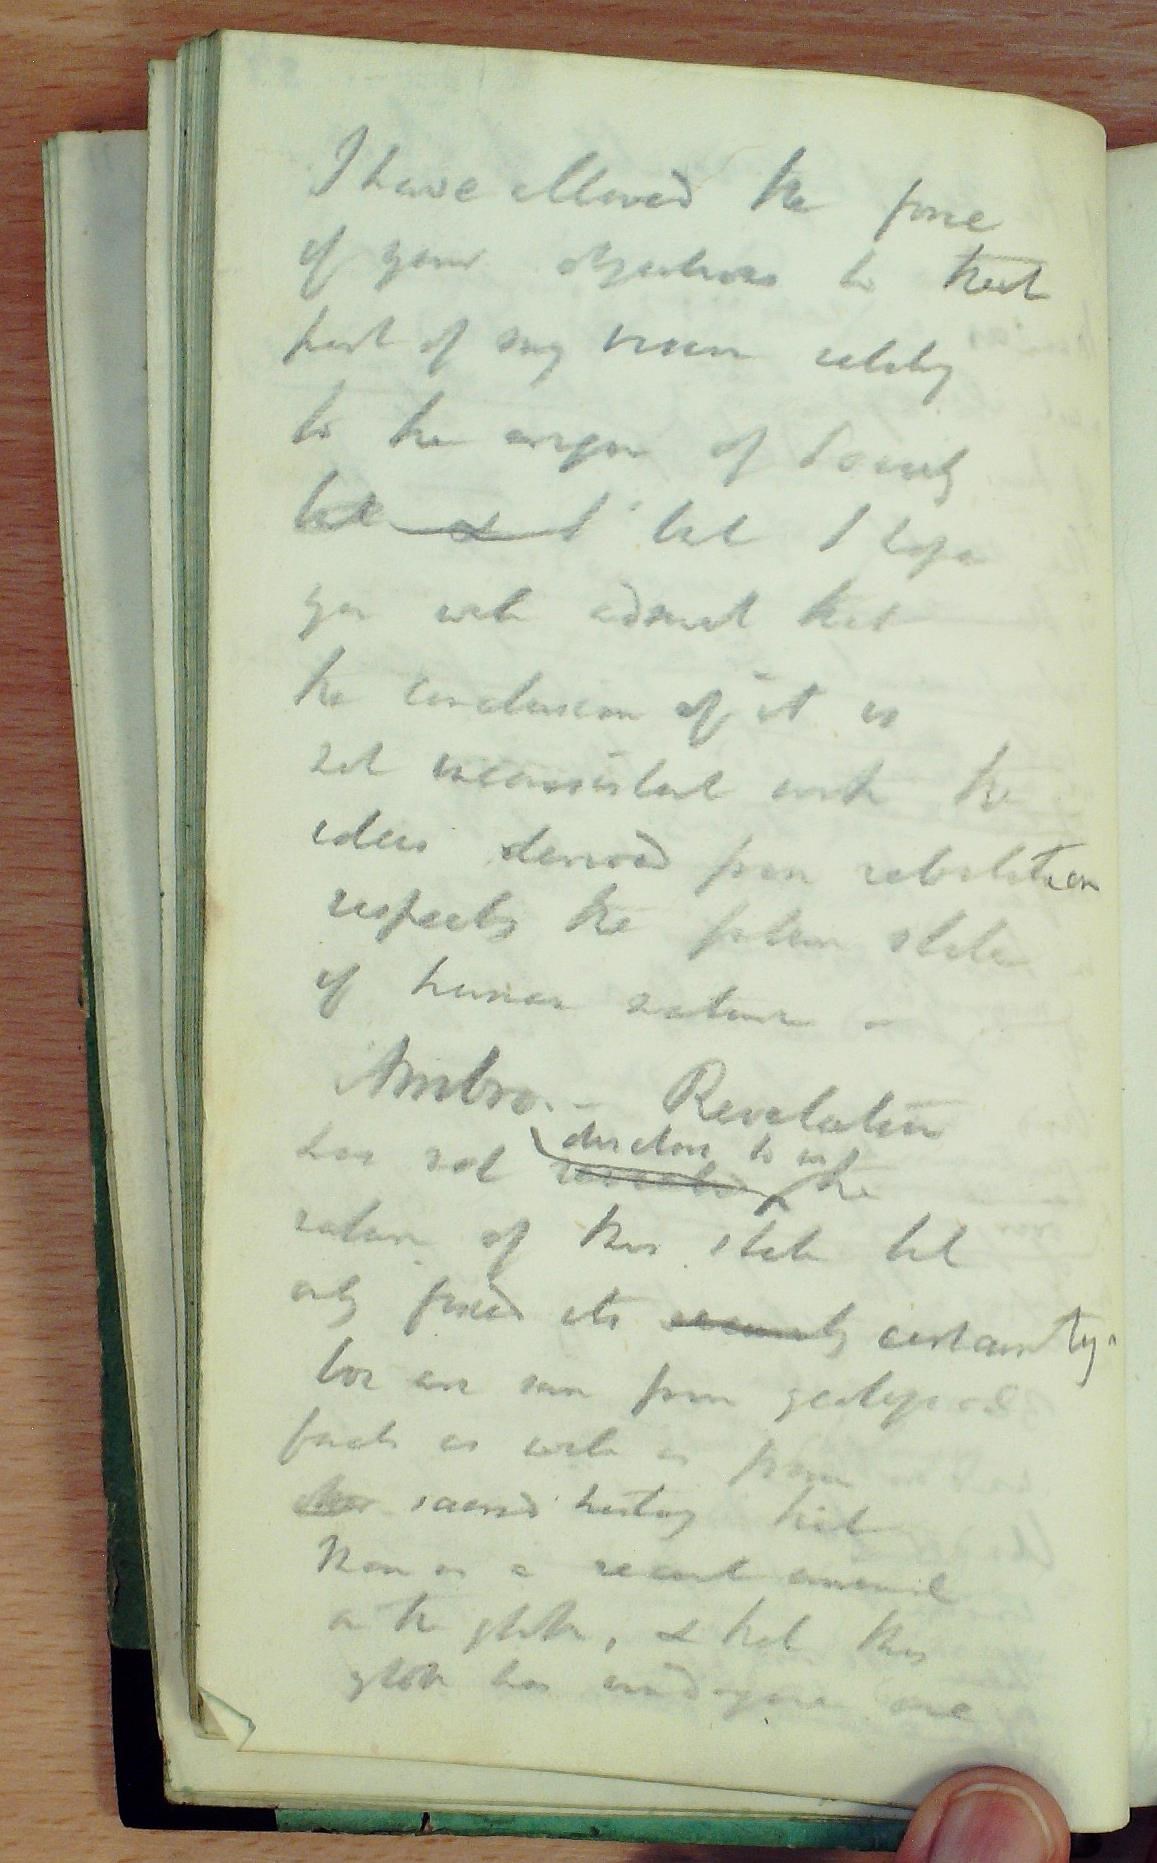 I have allowed the force
of your objections to that
part of my vision relating
to the origin of Society
but & I but I hope
you will admit that
the conclusion of it is
not inconsistent with the
ideas derived from revelation
respecting the future state
of human nature –
Ambro. – Revelation
has not revealed disclosed to us the
nature of this state but
only fixed its security certainty.
we are sure from geological
facts as well as from
sacred history that
Man is a recent animal
on the globe, & that this
globe has undergone one